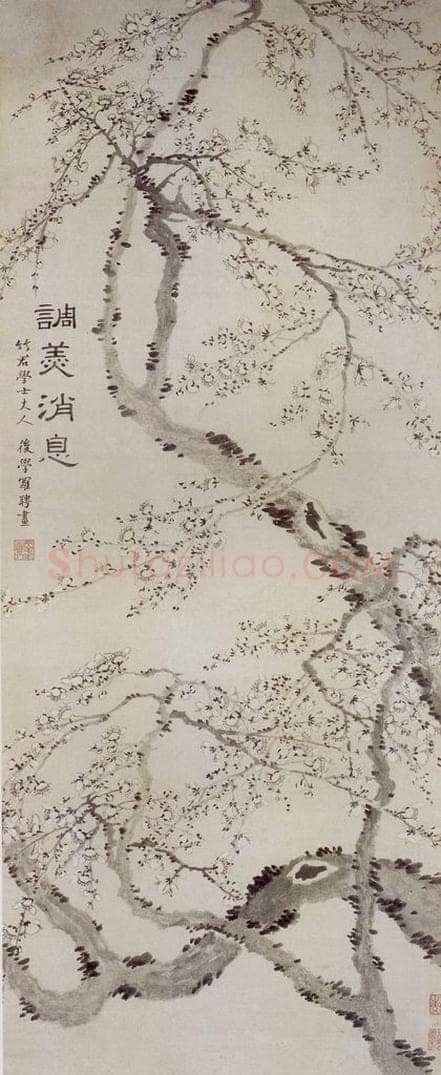 調羹消息
竹君學士大人 後學羅聘畫
Shufaziliao.COM